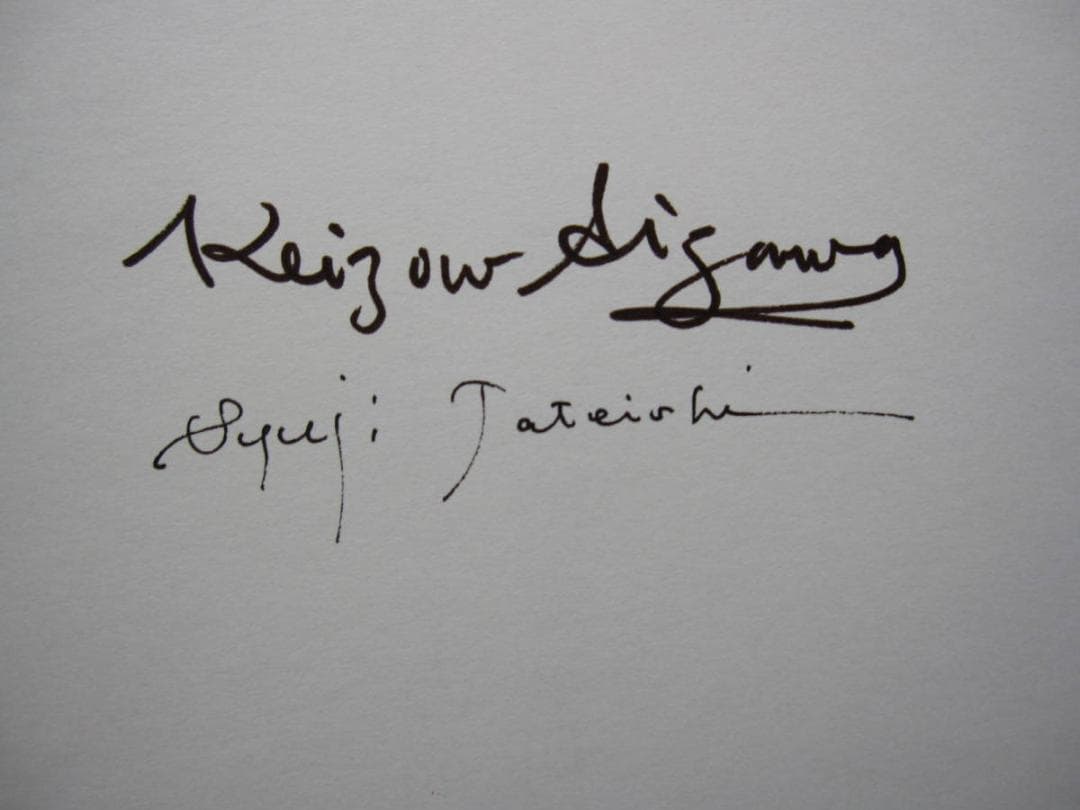 Keizow Sigawa
Syuji Tateishi